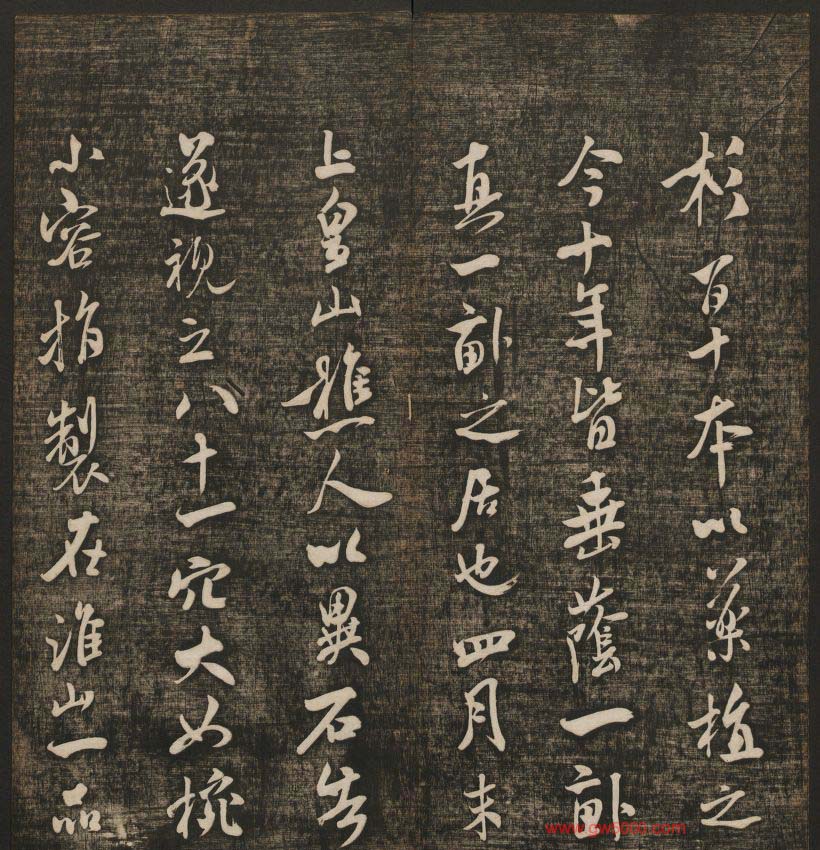 杉百十本以藥植之
今十年皆垂蔭一畝
真一畝之居也四月末
上皇山樵人以異石告
遂視之八十一穴大如椀
小容指製在淮山一品
www.gw5000.com